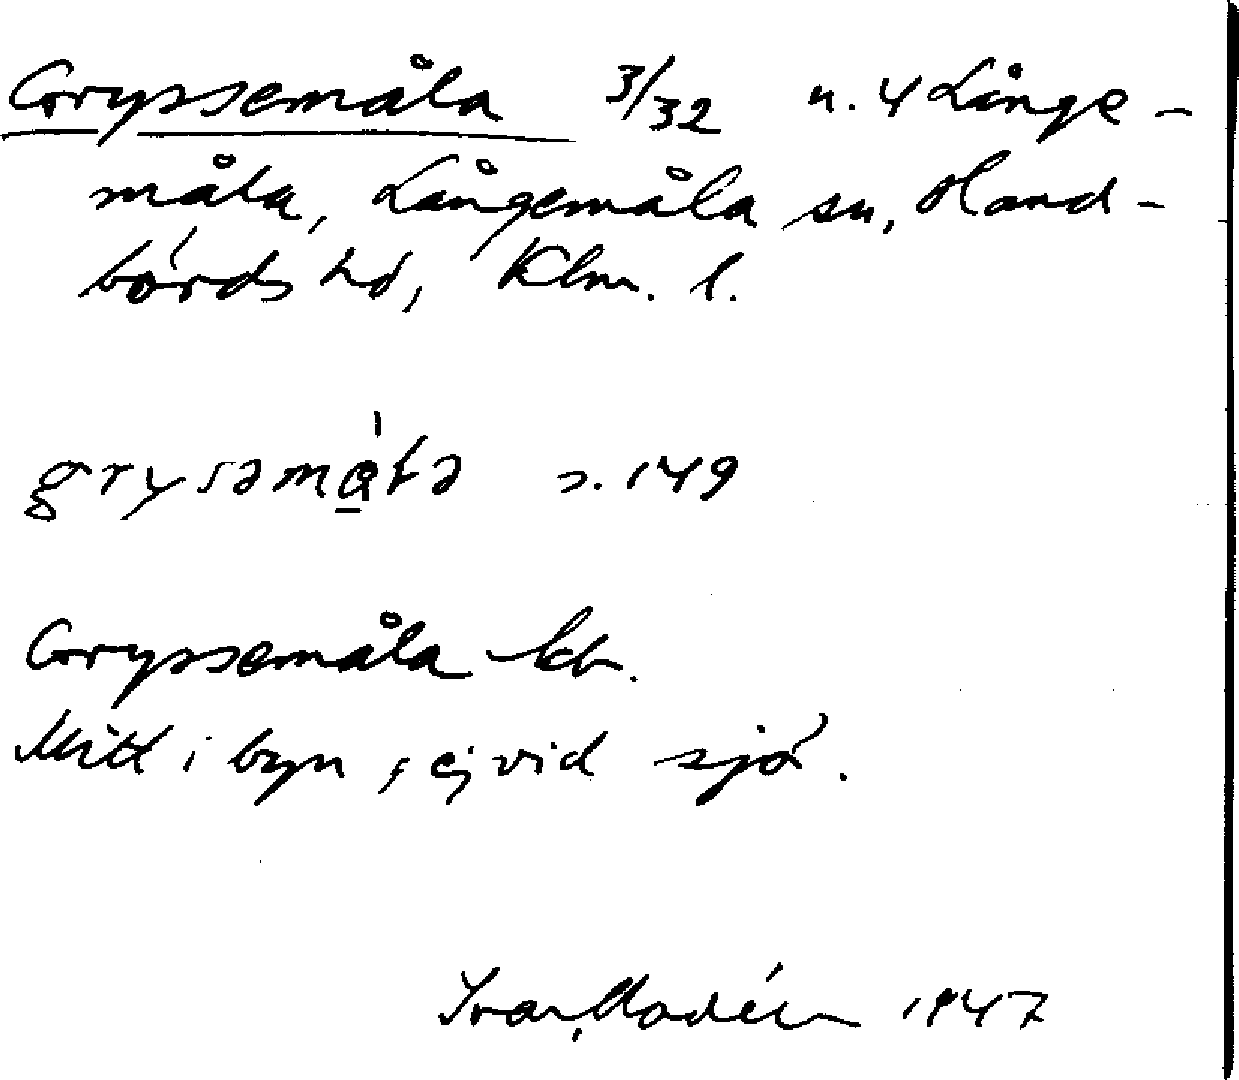 Gryssemåla 3/32 n. 4 Långe-
måla, Långemåla sn, Hand-
börds hd, Klm. l.
grysəmå̱`ɫa s. 149
Gryssemåla kb.
Mitt i byn, ej vid sjö.
Ivar Modéer 1947